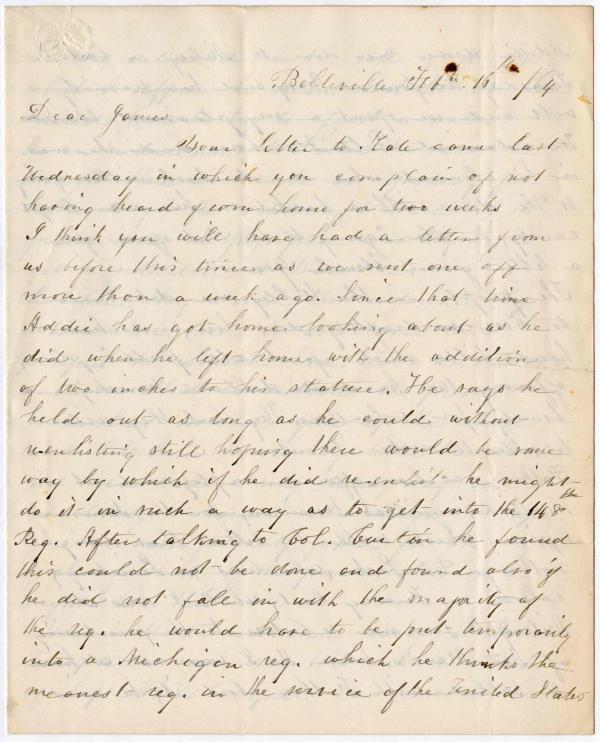 Belleville Feb. 16th /64
Dear James
Your letter to Kate came last
Wednesday in which you complain of not
having heard from home for two weeks
I think you will have had a letter from
us before this time as we sent one off
more than a week ago. Since that time
Addie has got home looking about as he
did when he left home with the addition
of two inches to his stature. He says he
held out as long as he could without
reenlisting still hoping there would be some
way by which if he did re-enlist he might
do it in such a way as to get into the 148th
Reg. After talking to Col. Curtin he found
this could not be done and found also if
he did not fall in with the majority of
the reg. he would have to be put temporarily
into a Michigan reg. which he thinks the
meanest reg. in the service of the United States